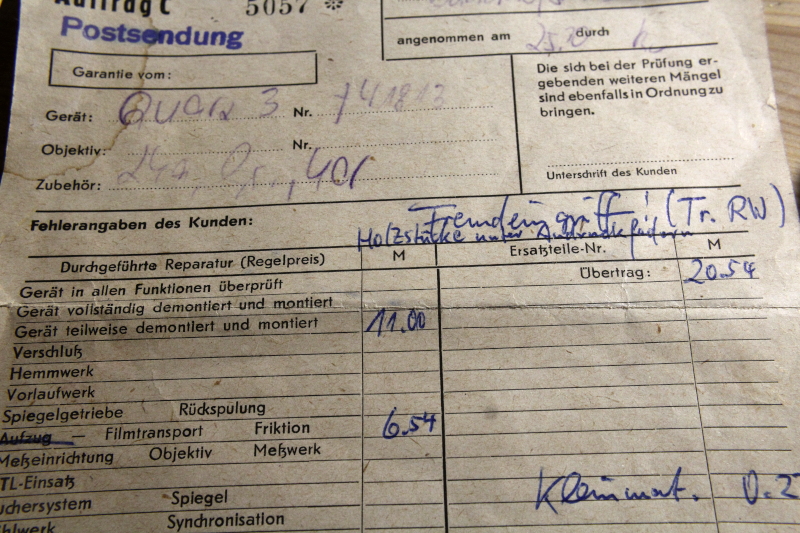 Auftrag C 5057 *
Postsendung
angenommen am 25. durch
Garantie vom:
Die sich bei der Prüfung er-
gebenden weiteren Mängel
sind ebenfalls in Ordnung zu
bringen.
Gerät: Quarz 3 Nr. 741813
Objektiv: Nr.
Zubehör:
Unterschrift des Kunden
Fehlerangaben des Kunden: Fremdeingriff! (Tr. RW)
Holzstücke unter Andruckfedern
Durchgeführte Reparatur (Regelpreis) M Ersatzteile-Nr. M
Gerät in allen Funktionen überprüft Übertrag: 20.54
Gerät vollständig demontiert und montiert
Gerät teilweise demontiert und montiert 11.00
Verschluß
Hemmwerk
Vorlaufwerk
Spiegelgetriebe Rückspulung
Aufzug — Filmtransport Friktion 6.54
Meßeinrichtung Objektiv Meßwerk
TTL-Einsatz
uchersystem Spiegel Kleinmat. 0.2
hlwerk Synchronisation